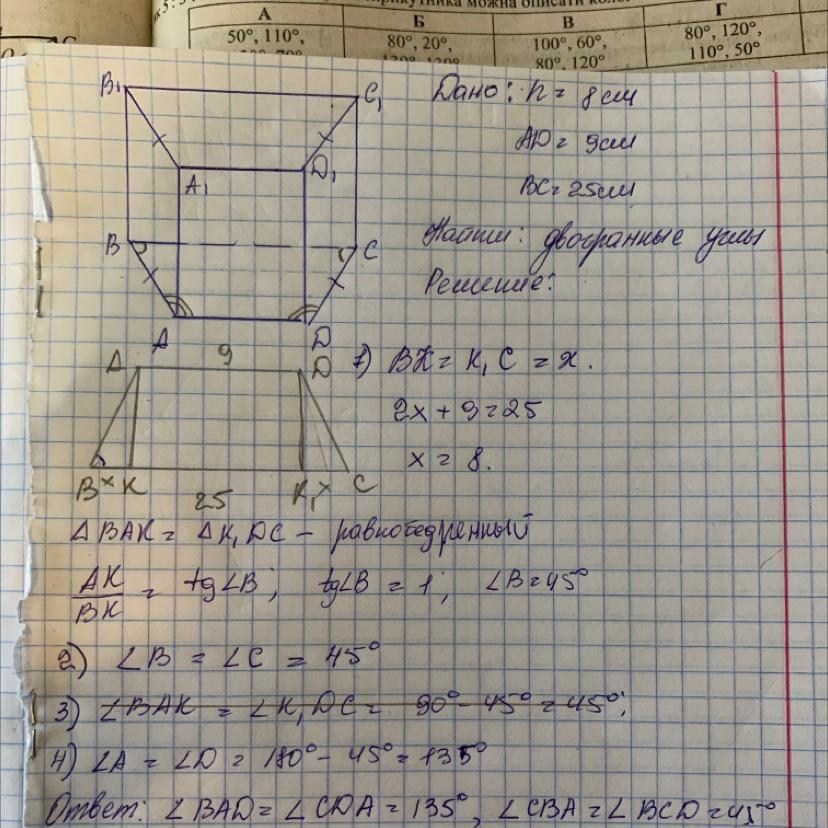 А Б В Г
50°, 110°, 80°, 20°, 100°, 60°, 80°, 120°,
80°, 120° 110°, 50°
B₁ C₁
A₁ D₁
B C
A D
Дано: h = 8 см
AD = 9 см
BC = 25 см
Найти: двогранные углы
Решение:
A 9 D
B x K 25 K₁ x C
1) BK = K₁C = x.
2x + 9 = 25
x = 8.
ΔBAK = ΔK₁DC – равнобедренный
AK/BK = tg∠B; tg∠B = 1; ∠B = 45°
2) ∠B = ∠C = 45°
3) ∠BAK = ∠K₁DC = 90° - 45° = 45°;
4) ∠A = ∠D = 180° - 45° = 135°
Ответ: ∠BAD = ∠CDA = 135°, ∠CBA = ∠BCD = 45°